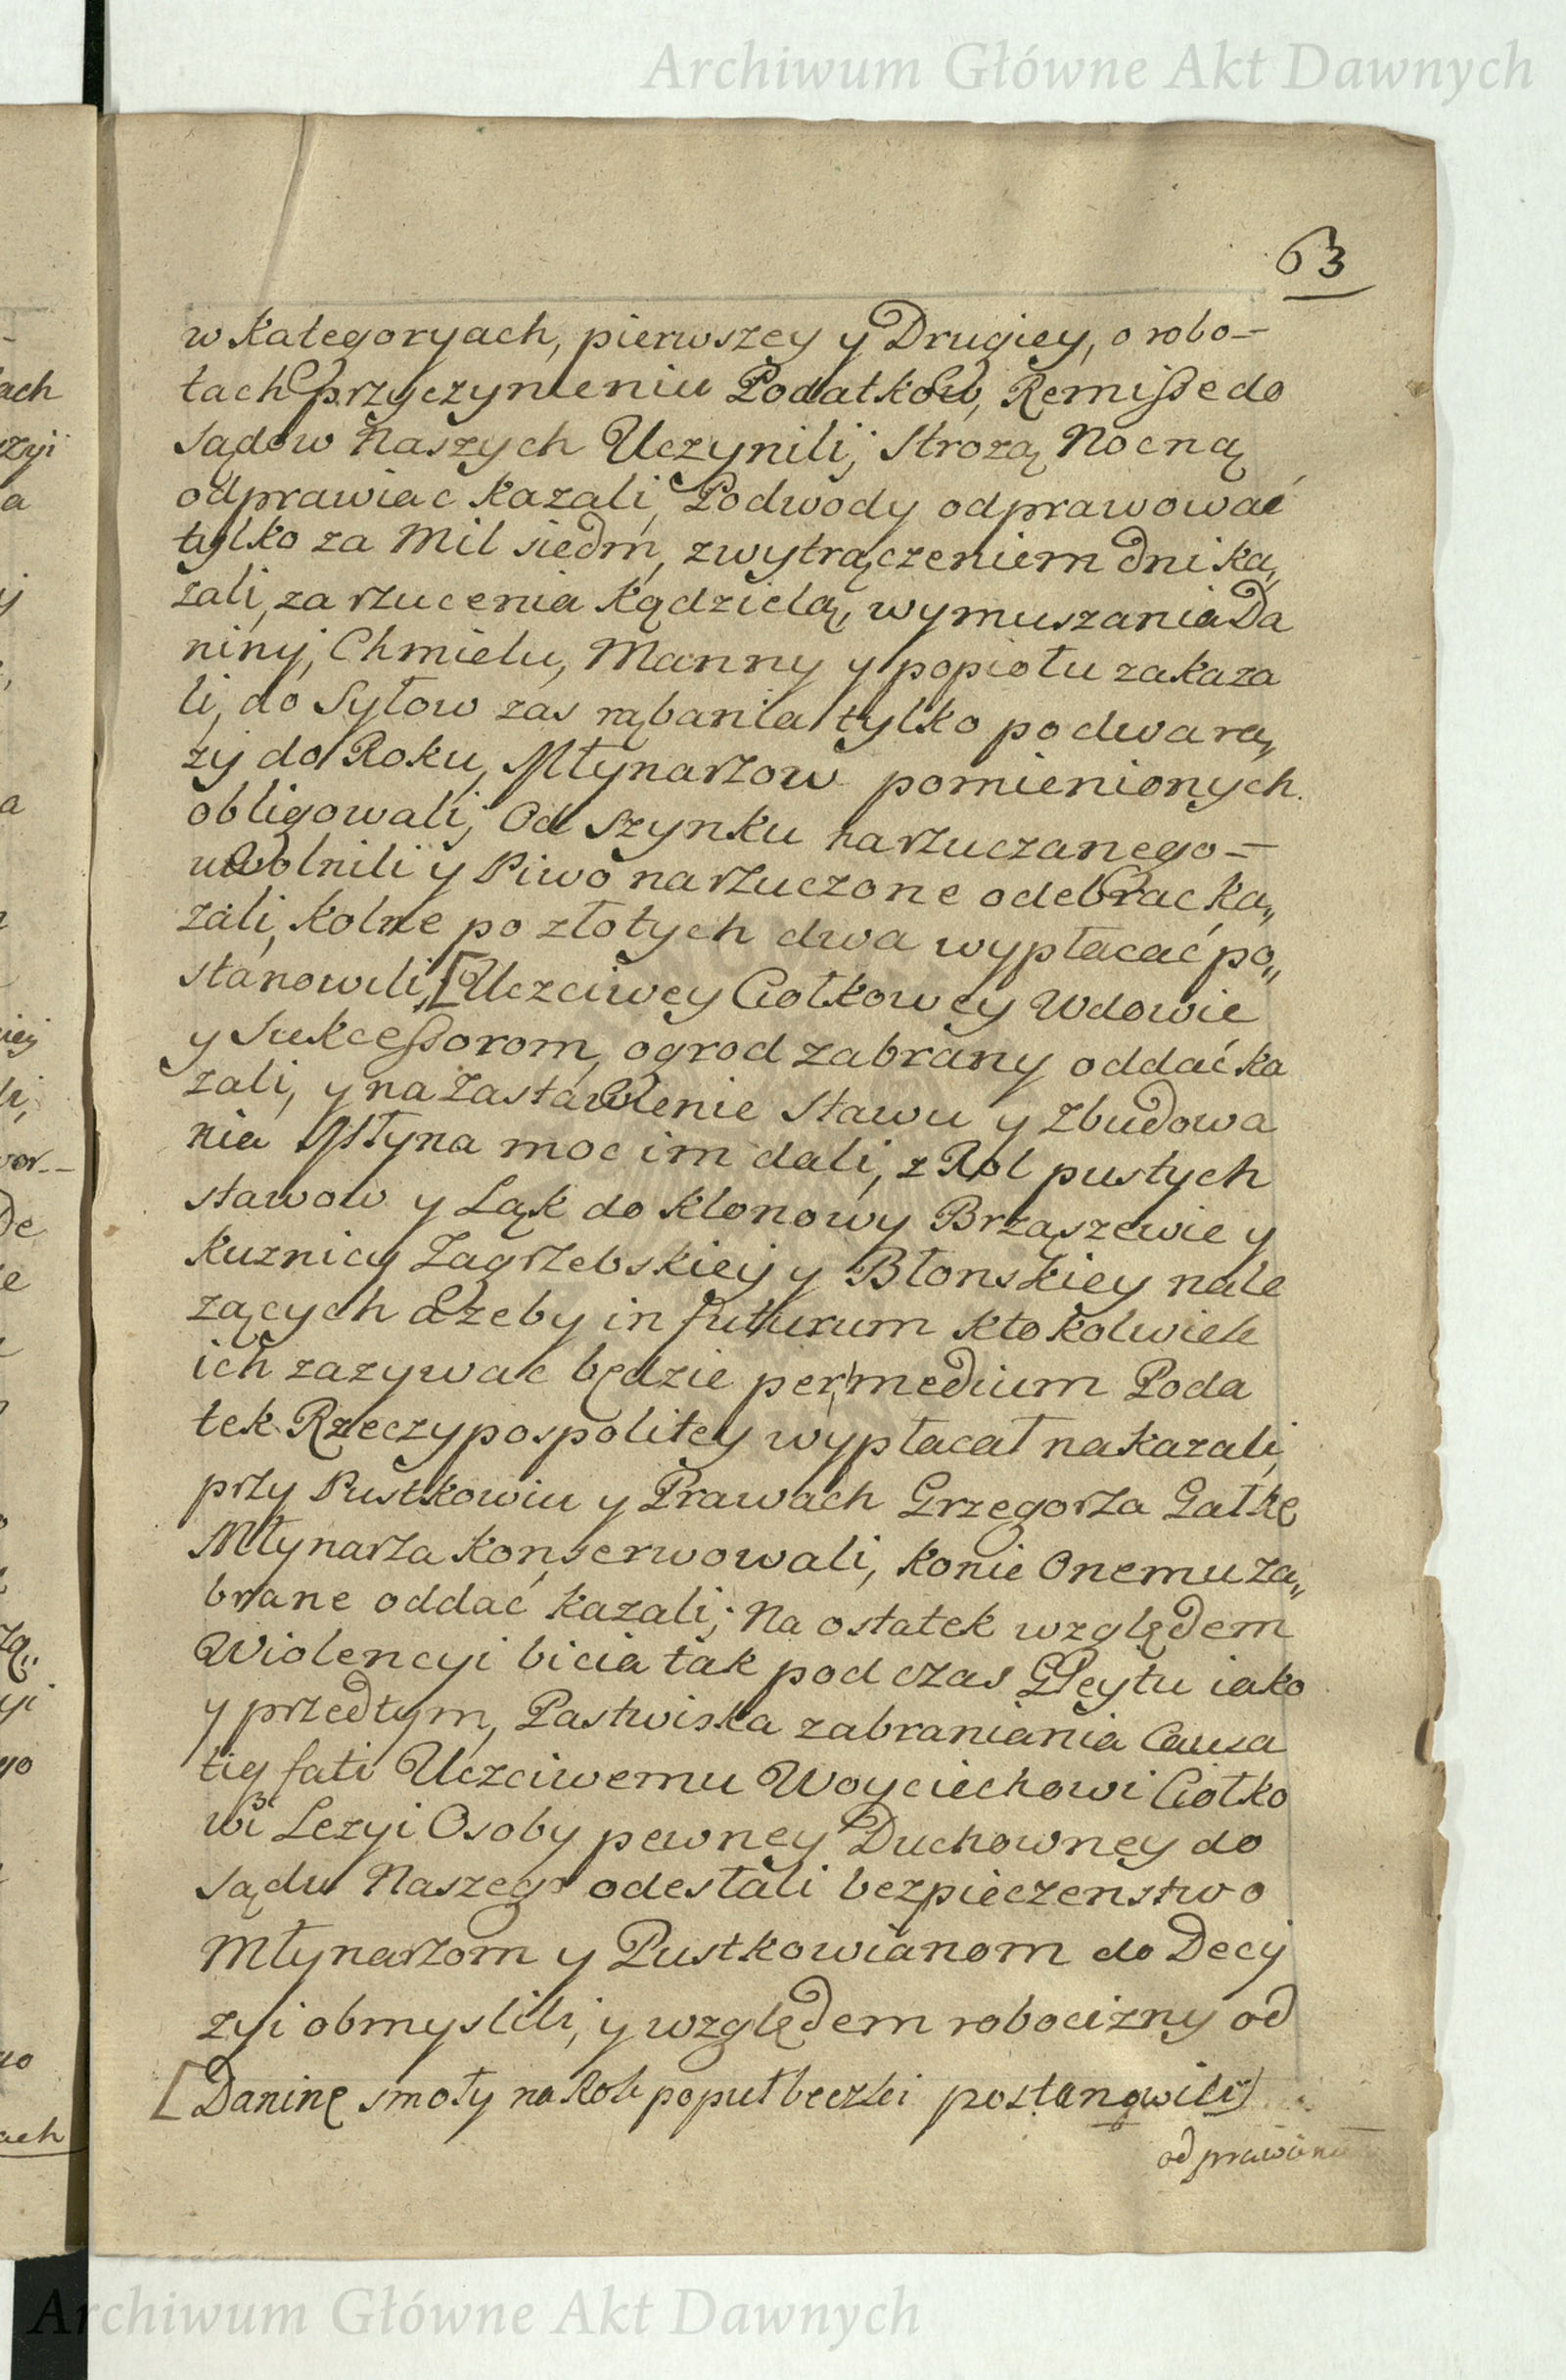 Archiwum Główne Akt Dawnych
63
w Kategoryach, pierwszey y Drugiey, o robo-
tach przyczynieniu Podatkow, Remisse do
Sądow Naszych Uczynili; Strozą Nocną
odprawiac kazali, Podwody odprawować
tylko za Mil siedm, z wytrączeniem dni ka,,
zali, zarzucenia Kądzielą, wymuszania Da
niny, Chmielu, Manny y popiołu zakaza
li, do Syłow zas rąbania tylko po dwa ra,,
zy do Roku, Młynarzow pomienionych
obligowali, Od Szynku narzuczanego =
uwolnili y Piwo narzuczone odebrac ka,,
zali, Kolne po złotych dwa wypłacać po,,
stanowili, [Uczciwey Ciołkowey Wdowie
y Sukcessorom, ogrod zabrany oddać ka
zali, y na Zastawienie Stawu y Zbudowa
nia Młyna moc im dali, z Rol pustych
stawow y Ląk do Klonowy Brząszewie y
Kuznicy Zagrzebskiey y Błonskiey nale
zących ażeby in futurum ktokolwiek
ich zazywac będzie per medium Poda
tek Rzeczypospolitey wypłacał nakazali,
przy Pustkowiu y Prawach Grzegorza Gałkę
Młynarza konserwowali, konie Onemu za,,
brane oddać kazali; Na ostatek względem
Wiolencyi bicia tak podczas Gleytu iako
y przedtym, Pastwiska zabraniania Causa
tig fati Uczciwemu Woyciechowi Ciołko
wi Lezyi Osoby pewney Duchowney do
Sądu Naszego odesłali bezpieczenstwo
Młynarzom y Pustkowianom do Decy
zyi obmyslili, y względem robocizny od
[Daninę smoły na Rok po puł beczki postanowili)
odprawiania
ach
zyi
a
y
a
iey
li,
wor.-
De
e
zą,,
yi
go
no
ach
Archiwum Główne Akt Dawnych